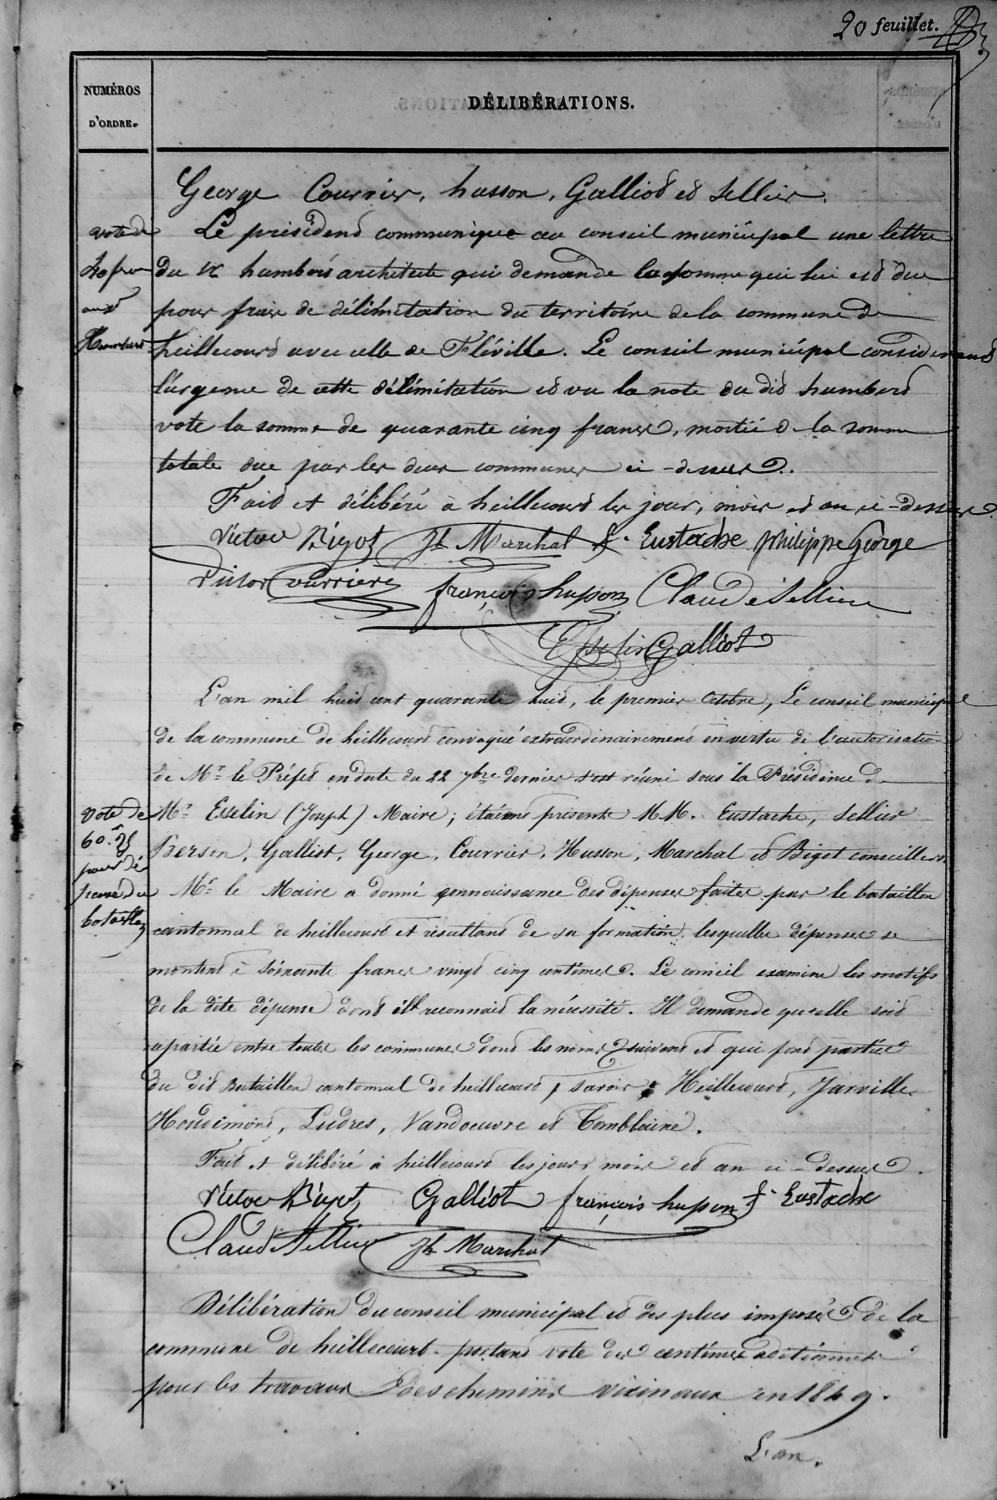 20 feuillet.
NUMÉROS
D'ORDRE.
DÉLIBÉRATIONS.
George Courrier, husson, Galliot et Sellier.
vote de
aux
Humbert
Le président communique au conseil municipal une lettre
du Sr humbert architecte qui demande la somme qui lui est due
pour frais de délimitation du territoire de la commune de
heillecourt avec celle de Fléville. Le conseil municipal considérant
l'urgence de cette délimitation et vu la note du dit humbert
vote la somme de quarante cinq francs, moitié de la somme
totale due par les deux communes ci-dessus.
Fait et délibéré à heillecourt les jour, mois et an ci-dessus.
Victor Bigot Jh Marchal f. Eustache philippe George
Victor Courrier françois husson Claude Sellier
Esselin Galliot
L'an mil huit cent quarante huit, le premier Octobre, Le conseil municipal
de la commune de heillecourt convoqué extraordinairement en vertu de l'autorisation
de Mr le Préfet en date du 22 7bre dernier s'est réuni sous la Présidence de
vote de
60f 25
pour dé
penses du
bataillon
Mr Esselin (Joseph) Maire; étaient présents MM. Eustache, Sellier
Bersin, Galliot, George, Courrier, Husson, Marchal et Bigot conseillers.
Mr le Maire a donné connaissance des dépenses faites par le bataillon
cantonnal de heillecourt et résultans de sa formation, lesquelles dépenses se
montent à soixante francs vingt cinq centimes. Le conseil examine les motifs
de la dite dépense dont il reconnait la nécessité. Il demande quelle soit
répartie entre toutes les communes dont les noms suivent et qui font partie
du dit Bataillon cantonnal de heillecourt, savoir : Heillecourt, Jarville
Houdemont, Ludres, Vandoeuvre et Tomblaine.
Fait et délibéré à heillecourt les jour, mois et an ci-dessus.
Victor Bigot Galliot françois husson f. Eustache
Claude Sellier Jh Marchal
Délibération du conseil municipal et des plus imposés de la
commune de heillecourt portant vote des centimes aditionnels
pour les travaux des chemins vicinaux en 1849.
L'an.